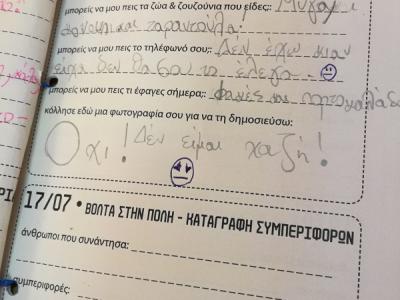 μπορείς να μου πεις τα ζώα & ζουζούνια που είδες;: Μυγα
και ταραντούλα!
μπορείς να μου πεις το τηλέφωνό σου;: Δεν έχω και
είχα δεν θα σου το έλεγα
μπορείς να μου πεις τι έφαγες σήμερα;: φακές και πορτοκαλάδα
κόλλησε εδώ μια φωτογραφία σου για να τη δημοσιεύσω:
Οχι! Δεν είμαι χαζή!
17/07 • ΒΟΛΤΑ ΣΤΗΝ ΠΟΛΗ - ΚΑΤΑΓΡΑΦΗ ΣΥΜΠΕΡΙΦΟΡΩΝ
άνθρωποι που συνάντησα:
συμπεριφορές: